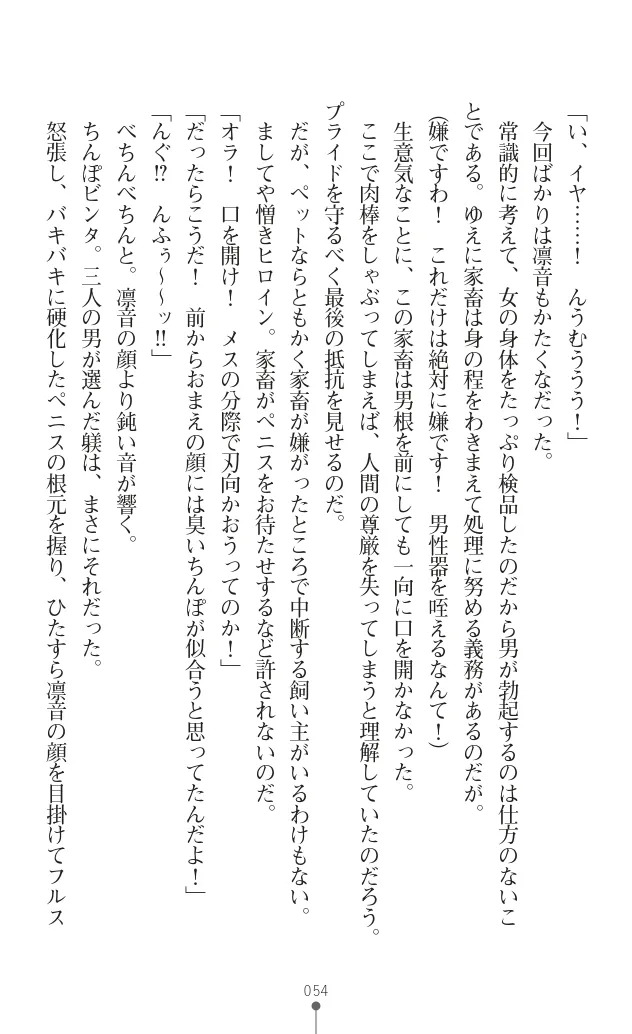 「い、イヤ……！　んうむううう！」
　今回ばかりは凛音もかたくなだった。
　常識的に考えて、女の身体をたっぷり検品したのだから男が勃起するのは仕方のないこ
とである。ゆえに家畜は身の程をわきまえて処理に努める義務があるのだが。
（嫌ですわ！　これだけは絶対に嫌です！　男性器を咥えるなんて！）
　生意気なことに、この家畜は男根を前にしても一向に口を開かなかった。
　ここで肉棒をしゃぶってしまえば、人間の尊厳を失ってしまうと理解していたのだろう。
プライドを守るべく最後の抵抗を見せるのだ。
　だが、ペットならともかく家畜が嫌がったところで中断する飼い主がいるわけもない。
　ましてや憎きヒロイン。家畜がペニスをお待たせするなど許されないのだ。
「オラ！　口を開け！　メスの分際で刃向かおうってのか！」
「だったらこうだ！　前からおまえの顔には臭いちんぽが似合うと思ってたんだよ！」
「んぐ!?　んふぅ〜〜ッ!!」
　べちんべちんと。凛音の顔より鈍い音が響く。
　ちんぽビンタ。三人の男が選んだ躾は、まさにそれだった。
　怒張し、バキバキに硬化したペニスの根元を握り、ひたすら凛音の顔を目掛けてフルス
054